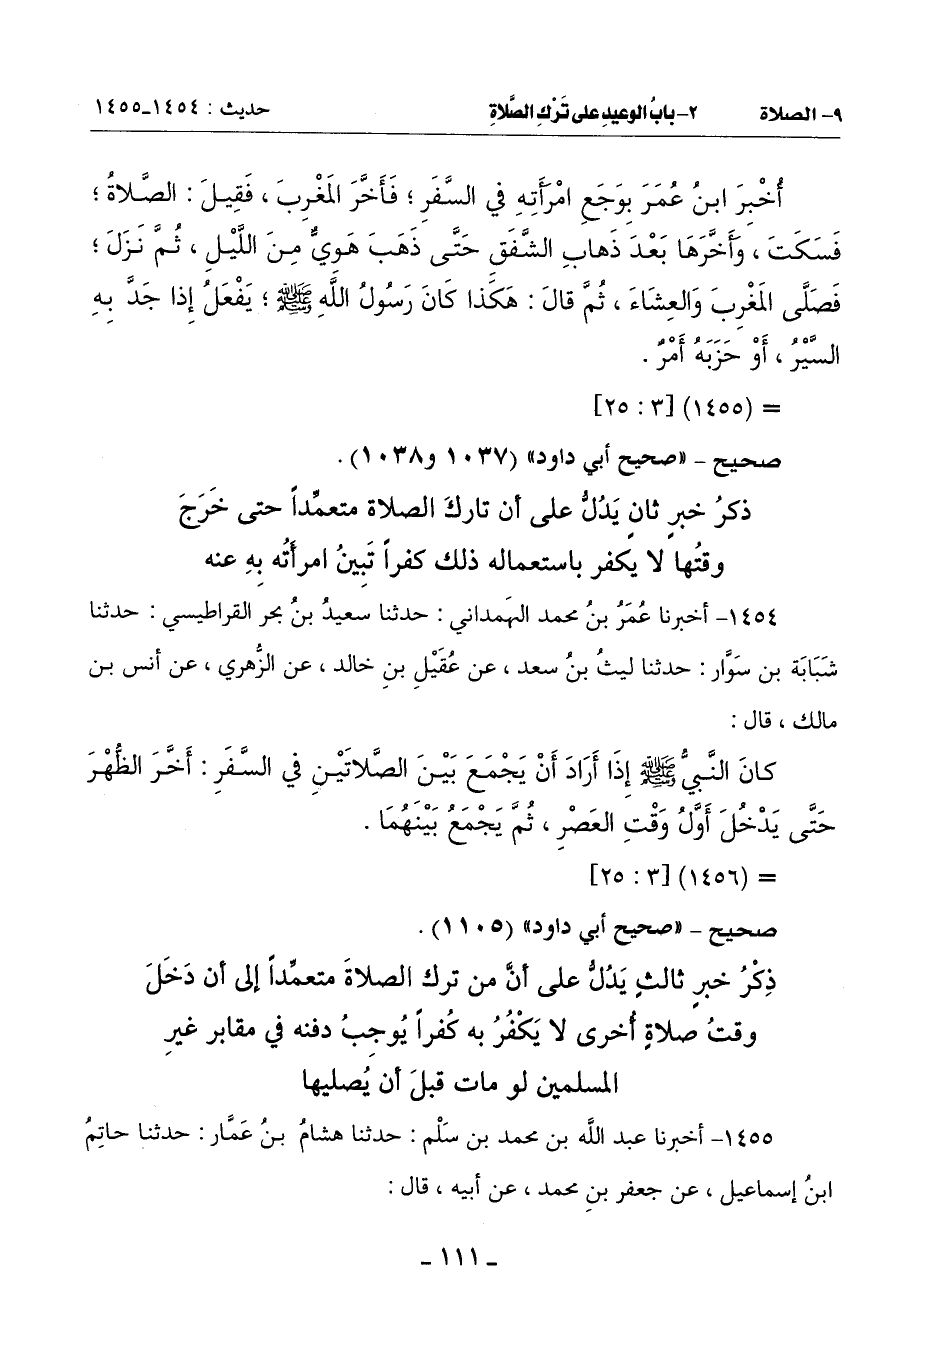 ٩- الصلاة ٢- بابُ الوعيدِ على تَرْكِ الصَّلاةِ حديث : ١٤٥٤-١٤٥٥
أُخْبِرَ ابنُ عُمَرَ بِوَجَعِ امْرَأَتِهِ في السَّفَرِ ؛ فَأَخَّرَ المَغْرِبَ ، فَقِيلَ : الصَّلاةُ ؛
فَسَكَتَ ، وأَخَّرَهَا بَعْدَ ذَهابِ الشَّفَقِ حَتَّى ذَهَبَ هَوِيٌّ مِنَ اللَّيْلِ ، ثُمَّ نَزَلَ ؛
فَصَلَّى المَغْرِبَ وَالعِشَاءَ ، ثُمَّ قالَ : هَكَذا كَانَ رَسُولُ اللَّهِ ﷺ ؛ يَفْعَلُ إذا جَدَّ بِهِ
السَّيْرُ ، أَوْ حَزَبَهُ أَمْرٌ .
= (١٤٥٥) [٣ : ٢٥]
صحيح - «صحيح أبي داود» (١٠٣٧ و١٠٣٨) .
ذكرُ خبرٍ ثانٍ يَدُلُّ على أن تاركَ الصلاة متعمِّداً حتى خَرَجَ
وقتُها لا يكفر باستعماله ذلك كفراً تَبِينُ امرأتُه بِهِ عنه
١٤٥٤- أخبرنا عُمَرُ بنُ محمد الهَمداني : حدثنا سعيدُ بنُ بحر القراطيسي : حدثنا
شَبَابَة بن سَوَّار : حدثنا ليثُ بنُ سعد ، عن عُقَيْلِ بنِ خالد ، عن الزُّهري ، عن أنس بن
مالك ، قال :
كانَ النَّبيُّ ﷺ إذَا أَرَادَ أَنْ يَجْمَعَ بَيْنَ الصَّلاتَيْنِ في السَّفَرِ : أَخَّرَ الظُّهْرَ
حَتَّى يَدْخُلَ أَوَّلُ وَقْتِ العَصْرِ ، ثُمَّ يَجْمَعُ بَيْنَهُمَا .
= (١٤٥٦) [٣ : ٢٥]
صحيح - «صحيح أبي داود» (١١٠٥) .
ذِكْرُ خبرٍ ثالثٍ يَدُلُّ على أنَّ من ترك الصلاةَ متعمِّداً إلى أن دَخَلَ
وقتُ صلاةٍ أُخرى لا يَكْفُرُ به كُفراً يُوجِبُ دفنه في مقابر غيرِ
المسلمين لو مات قبلَ أن يُصليها
١٤٥٥- أخبرنا عبد اللَّه بن محمد بن سَلْم : حدثنا هشامُ بنُ عَمَّار : حدثنا حاتِمُ
ابنُ إسماعيل ، عن جعفر بنِ محمد ، عن أبيه ، قال :
- ١١١ -